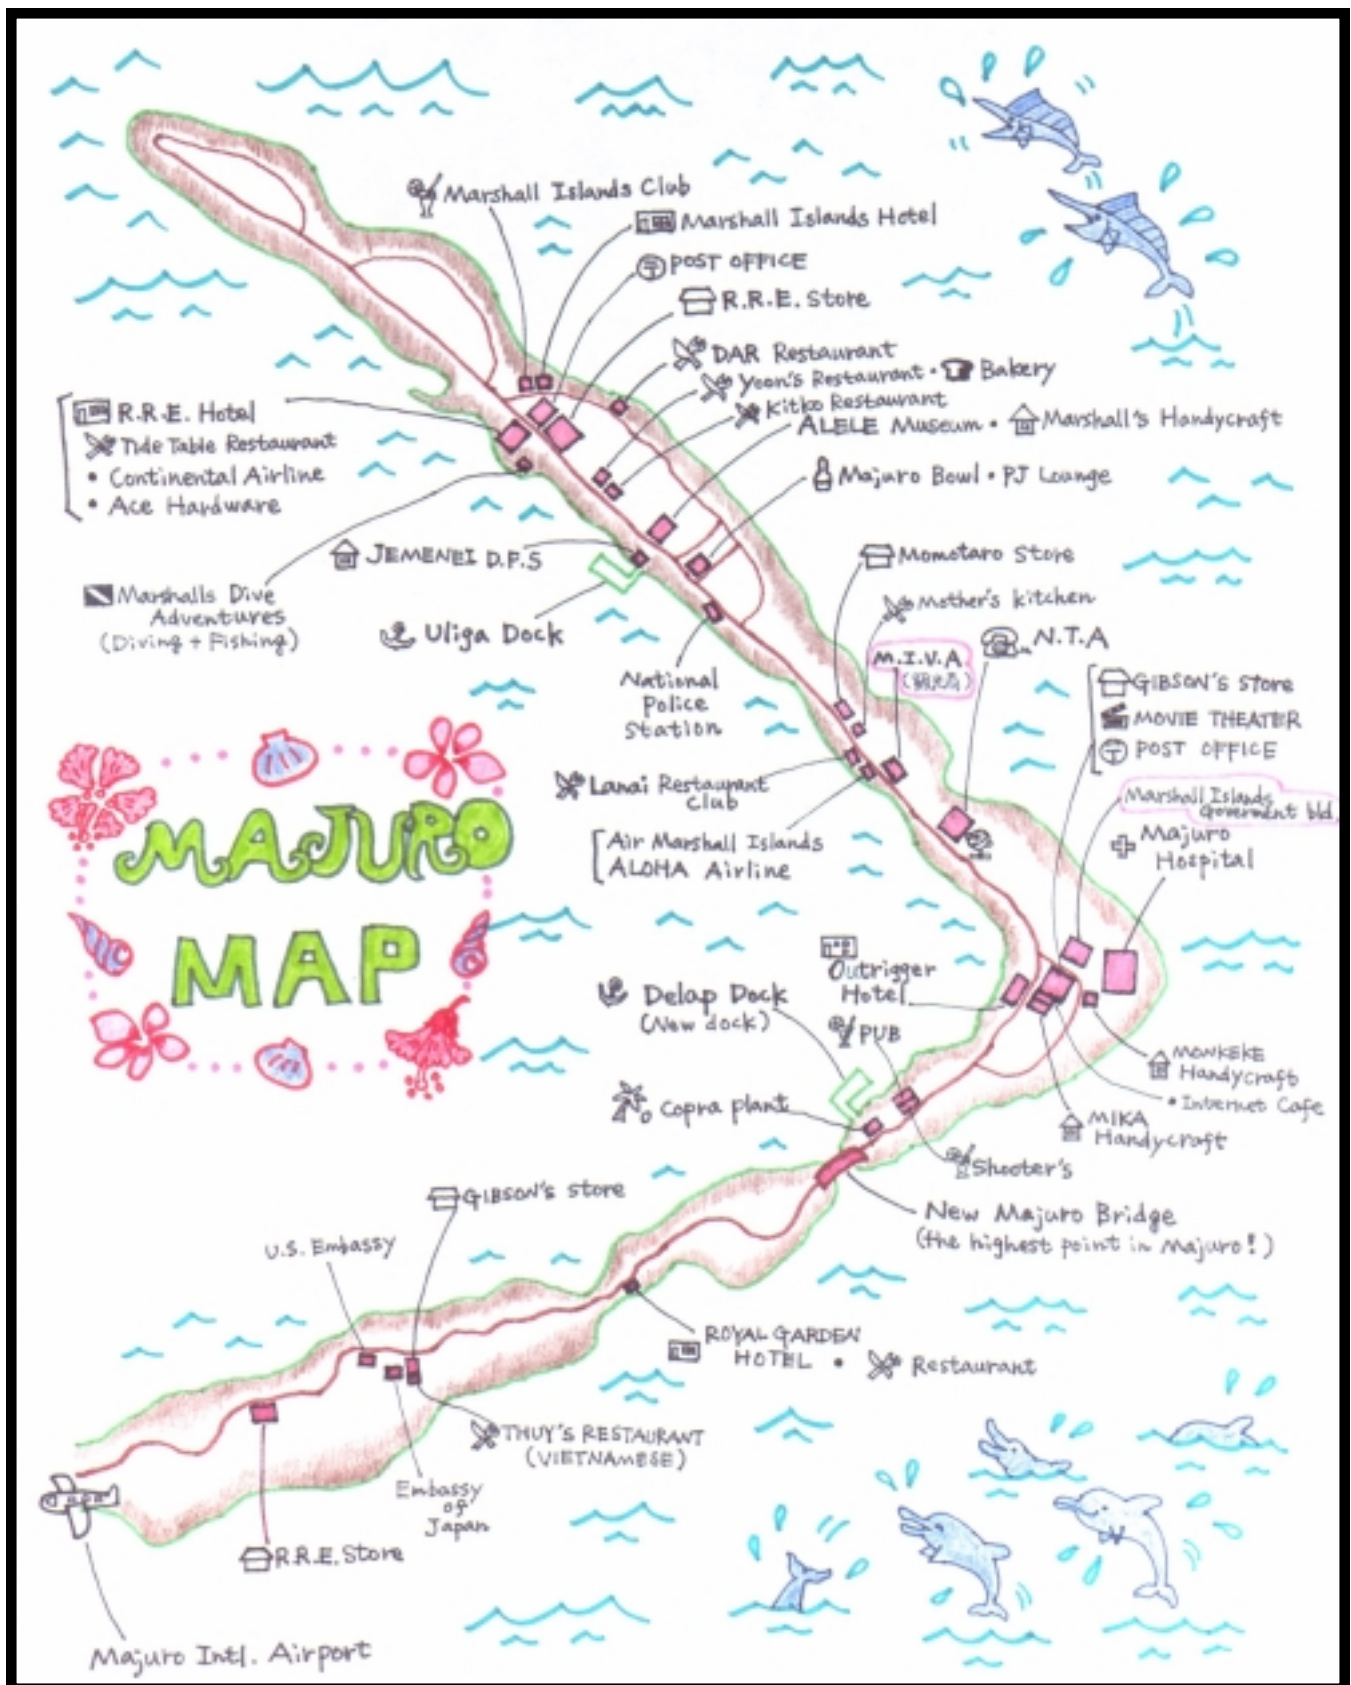 Marshall Islands Club
Marshall Islands Hotel
POST OFFICE
R.R.E. Store
DAR Restaurant
Yoon's Restaurant • Bakery
Kitko Restaurant
ALELE Museum • Marshall's Handycraft
Majuro Bowl • PJ Lounge
R.R.E. Hotel
Tide Table Restaurant
• Continental Airline
• Ace Hardware
JEMENEI D.P.S
Marshalls Dive
Adventures
(Diving + Fishing)
Uliga Dock
National
Police
Station
Momotaro Store
Mother's kitchen
M.I.V.A
(観光局)
N.T.A
GIBSON'S Store
MOVIE THEATER
POST OFFICE
Marshall Islands
Goverment bld.
Majuro
Hospital
Lanai Restaurant
Club
Air Marshall Islands
ALOHA Airline
MAJURO
MAP
Outrigger
Hotel
Delap Dock
(New dock)
PUB
Copra plant
MONKEKE
Handycraft
• Internet Cafe
MIKA
Handycraft
Shooter's
New Majuro Bridge
(the highest point in Majuro!)
GIBSON'S Store
U.S. Embassy
ROYAL GARDEN
HOTEL • Restaurant
THUY'S RESTAURANT
(VIETNAMESE)
Embassy
of
Japan
R.R.E. Store
Majuro Intl. Airport